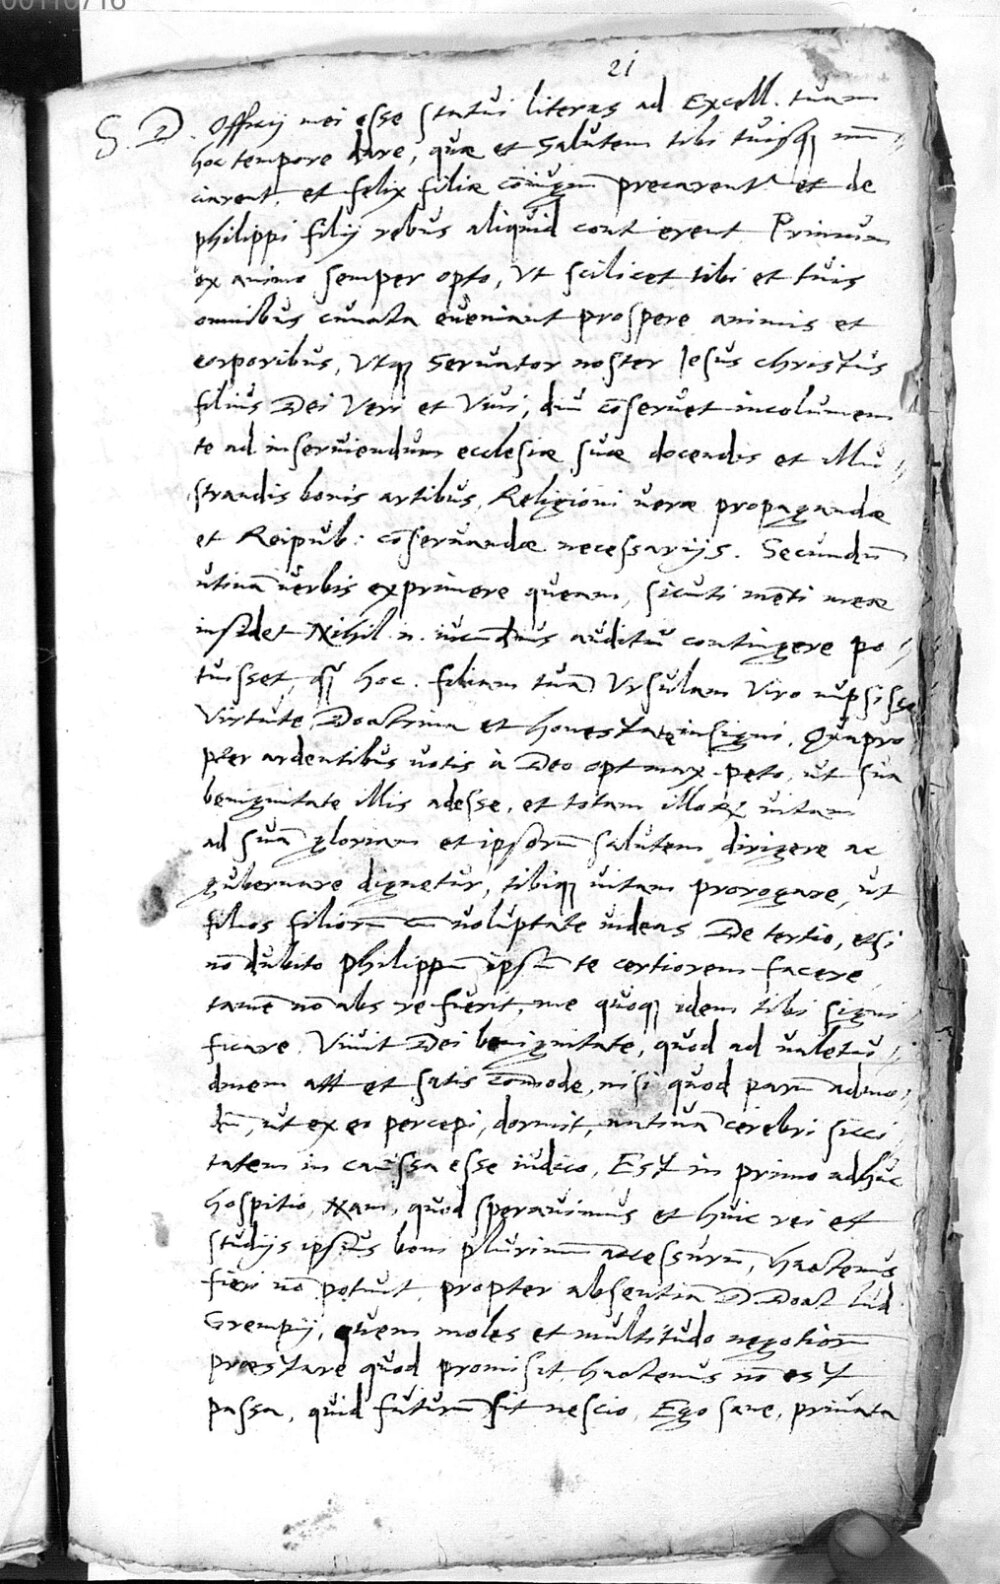 00110716
21
S. D. Officij mei esse statui literas ad Excell. tuam
hoc tempore dare, quæ et Salutem tibi tuisq₃ nun=
ciarent, et felix filiæ cōiugiū precarentr et de
philippi filij rebus aliquid conterent. Primum
ex animo semper opto, Vt scilicet tibi et tuis
omnibus cuncta eueniant prospere animis et
corporibus, Vtq₃ Seruator noster Jesus christus
filius Dei Veri et Viui, diu cōseruet incolumem
te ad inseruiendum ecclesiæ suæ docendis et illu=
strandis bonis artibus, Religioni ueræ propagandæ
et Reipub: cōseruandæ necessarijs. Secundū
utinā uerbis exprimere queam, sicuti mēti meæ
insidet Nihil .n. iucundius auditu contingere po=
tuisset, quā hoc. filiam tuā Vrsulam Viro nupsisse
Virtute, Doctrina et honestate insigni. Quapro
pter ardentibus uotis à Deo opt max. peto, ut sua
benignitate illis adesse, et totam illoꝝ uitam
ad suā gloriam et ipsorū salutem dirigere ac
gubernare dignetur, tibiq₃ uitam prorogare, ut
filios filiorū cū uoluptate uideas De tertio, etsi
nō dubito philippū ipsū te certiorem facere,
tamē nō abs re fuerit, me quoq₃ idem tibi signi
ficare. Viuit Dei benignitate, quod ad ualetu=
dinem att̄ et satis cōmode, nisi quod parū admo=
dū, ut ex eo percepi, dormit, natiuā cerebri sicci
tatem in caussa esse iudico. Est in primo adhuc
hospitio, Nam, quod sperauimus et huic rei et
studijs ipsius boni plurimū accessurū, hactenus
fieri nō potuit, propter absentiā D. Doct Lud.
Grempij, quem moles et multitudo negotiorū
præstare quod promisit, hactenus nō est
passa, quid futurū sit nescio. Ego sane, priuata